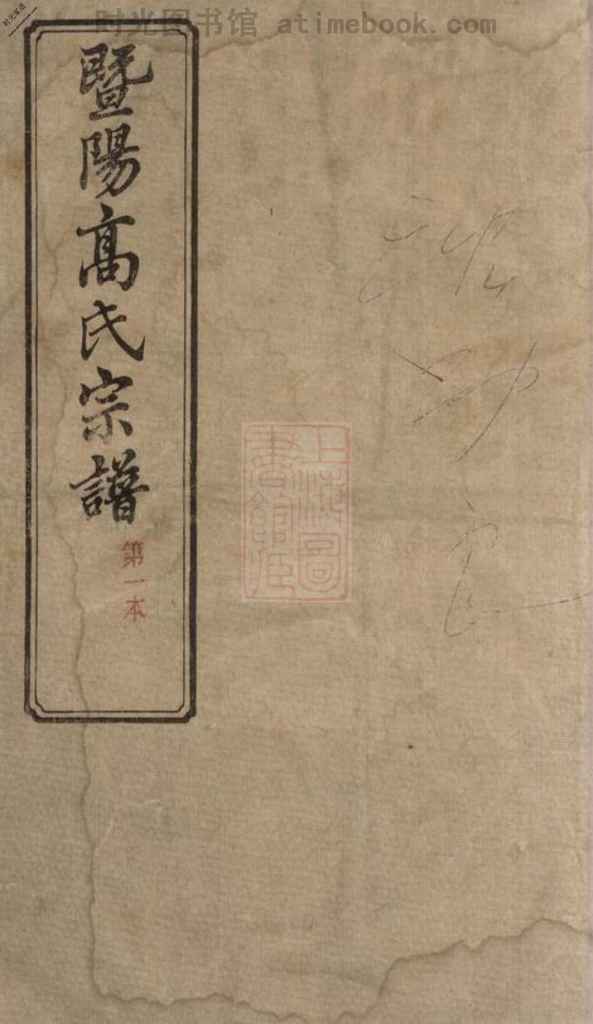 时光图书馆 atimebook.com
暨陽高氏宗譜
第一本
上海圖
書館藏